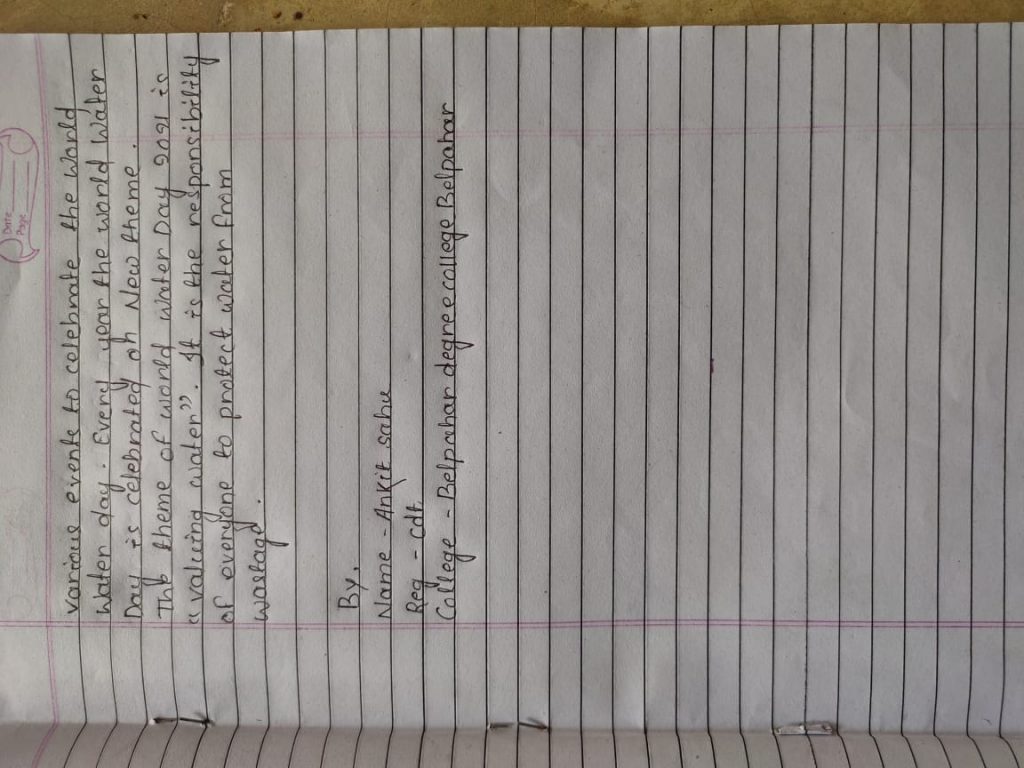 Date
Page
various events to celebrate the world
Water day. Every year the world Water
Day is celebrated oh New theme.
The theme of world water Day 2021 is
"valuing water". It is the responsibility
of everyone to protect water from
wastage.
By,
Name - Ankit sahu
Reg - cdt
College - Belpahar degree college Belpahar